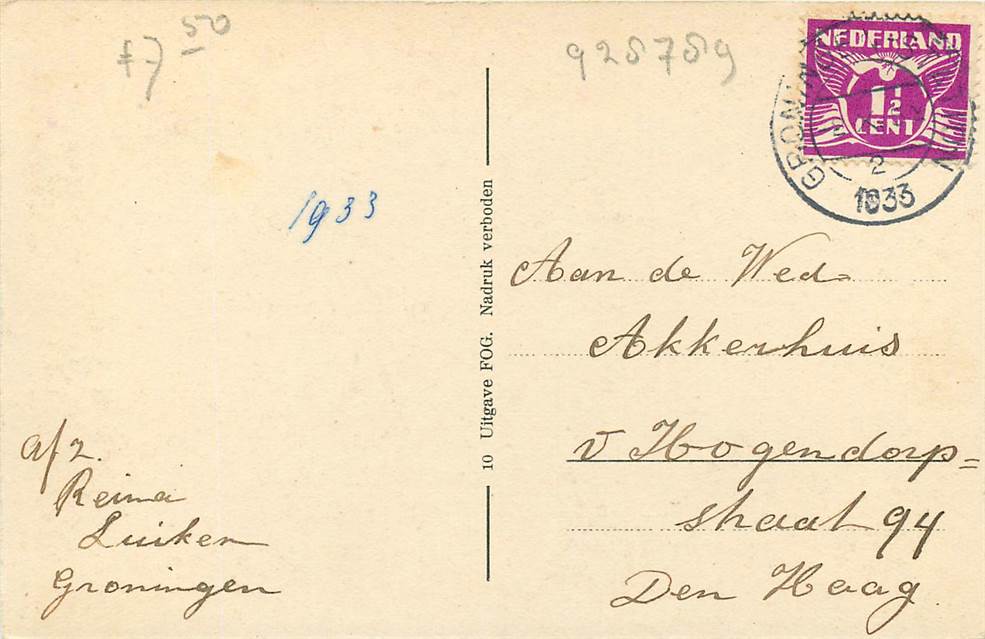 f7 50
928789
NEDERLAND
1½
CENT
2
1933
1933
10 Uitgave FOG. Nadruk verboden
Aan de Wed
Akkerhuis
v Hogendorp=
straat 94
Den Haag
afz.
Reina
Luiken
Groningen